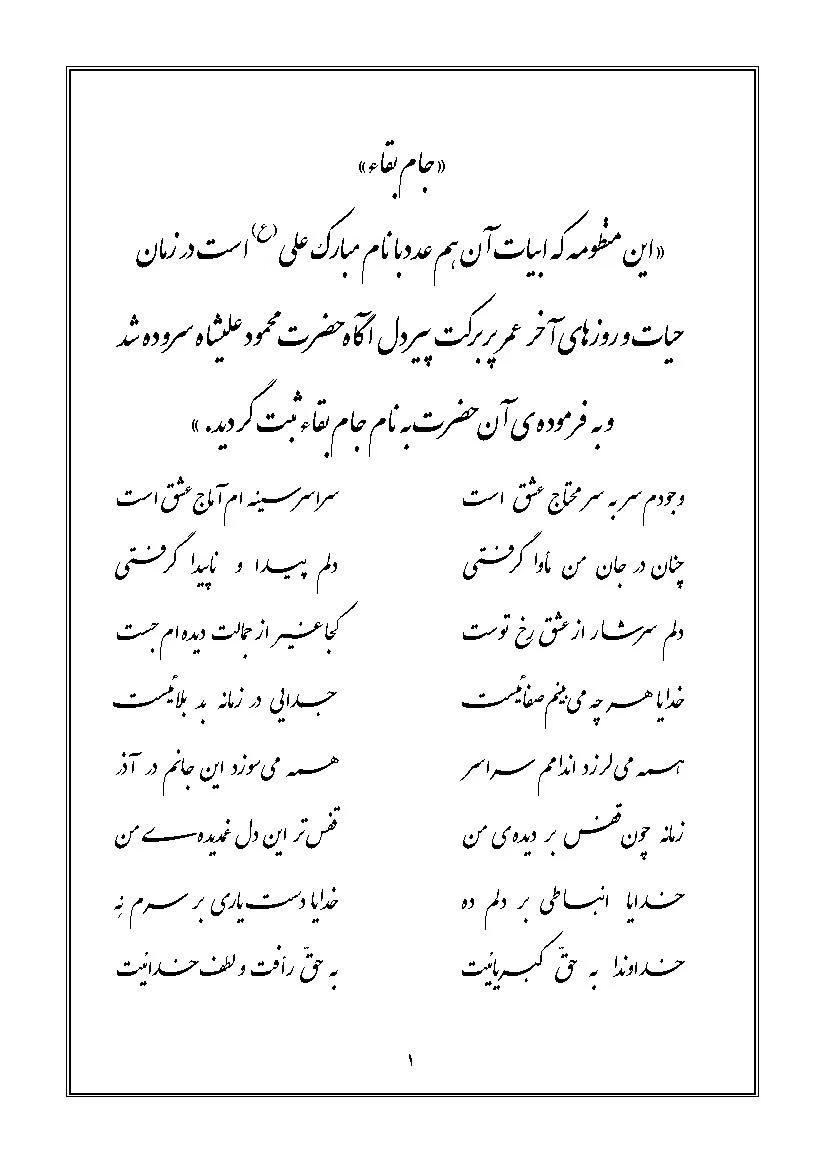 «جام بقاء»
«این منظومه که ابیات آن هم عدد با نام مبارک علی (ع) است در زمان
حیات و روزهای آخر عمر پر برکت پیر دل آگاه حضرت محمود علیشاه سروده شد
و به فرموده ی آن حضرت به نام جام بقاء ثبت گردید.»
وجودم سر به سر محتاج عشق است سراسر سینه ام آماج عشق است
چنان در جان من مأوا گرفتی دلم پیدا و ناپیدا گرفتی
دلم سرشار از عشق رخ توست کجا غیر از جمالت دیده ام جست
خدایا هر چه می بینم صفائیست جدایی در زمانه بد بلائیست
همه می لرزد اندامم سراسر همه می سوزد این جانم در آذر
زمانه چون قفس بر دیده ی من قفس تر این دل غمدیده ی من
خدایا انبساطی بر دلم ده خدایا دست یاری بر سرم نِه
خداوندا به حقّ کبریائیت به حقّ رأفت و لطف خدائیت
۱